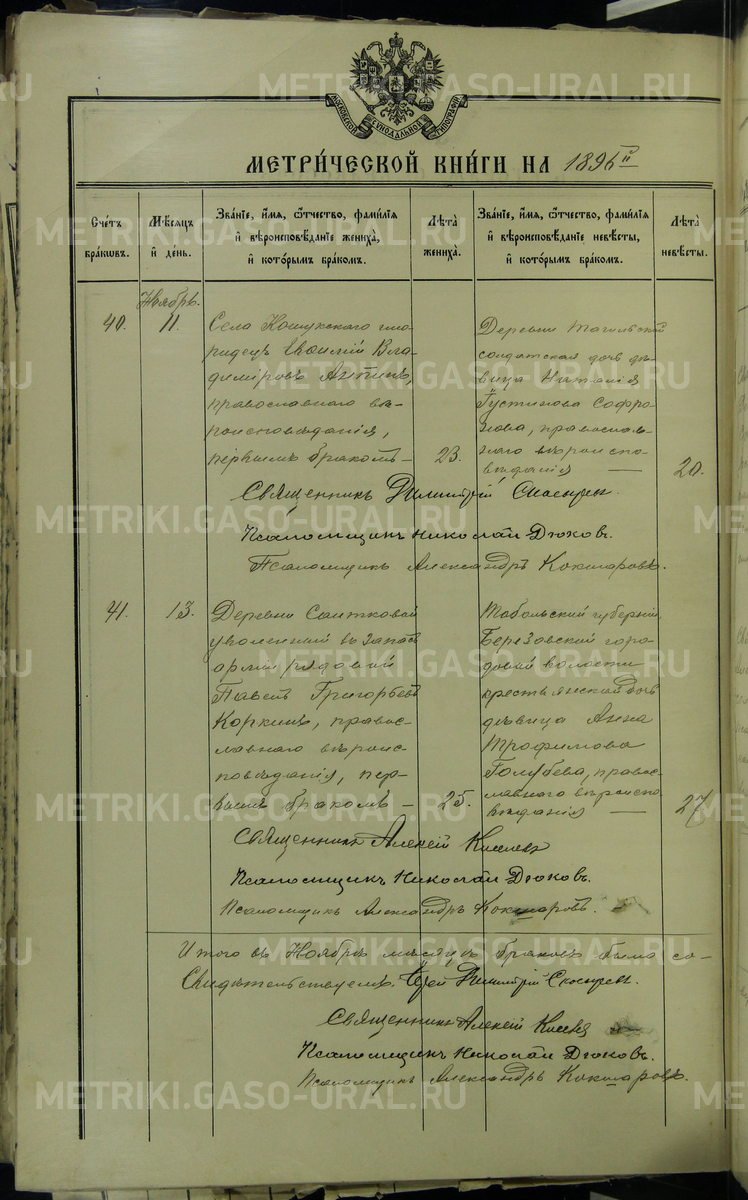 МОСКОВСКОЙ СѴНОДАЛЬНОЙ ТИПОГРАФІИ
МЕТРИ́ЧЕСКОЙ КНИ́ГИ НА 1896й
Сче́тъ бра́кѡвъ.
Мѣ́сѧцъ и҆ де́нь.
Зва́нїе, и҆́мѧ, ѻ҆́тчество, фами́лїѧ и҆ вѣроисповѣ́данїе жениха̀, и҆ кото́рымъ бра́комъ.
Лѣ́та жениха̀.
Зва́нїе, и҆́мѧ, ѻ҆́тчество, фами́лїѧ и҆ вѣроисповѣ́данїе невѣ́сты, и҆ кото́рымъ бра́комъ.
Лѣ́та невѣ́сты.
Ноябрь.
40.
11.
Села Кошукскаго
Владиміровъ
православнаго вѣ-
роисповѣданія,
первымъ бракомъ —
23.
Деревни
солдатская дочь дѣ-
вица Наталія
Іустинова Софро-
нова, православ-
наго вѣроиспо-
вѣданія —
20.
Священникъ Димитрій Скосыревъ.
Псаломщикъ Николай Дюковъ.
Псаломщикъ Александръ Кокшаровъ.
41.
13.
Деревни
уволенный въ запасъ
арміи рядовой
Павелъ Григорьевъ
Коркинъ, правос-
лавнаго вѣроис-
повѣданія, пер-
вымъ бракомъ —
25.
Тобольской губерніи,
Березовской горо-
довой волости
крестьянская дочь
дѣвица Анна
Трофимова
Голубева, правос-
лавнаго вѣроиспо-
вѣданія —
27
Священникъ Алексій Киселевъ
Псаломщикъ Николай Дюковъ.
Псаломщикъ Александръ Кокшаровъ.
Итого въ Ноябрѣ мѣсяцѣ браковъ было
Свидѣтельствуемъ: Іерей Димитрій Скосыревъ.
Священникъ Алексій Киселевъ
Псаломщикъ Николай Дюковъ.
Псаломщикъ Александръ Кокшаровъ.
METRIKI.GASO-URAL.RU